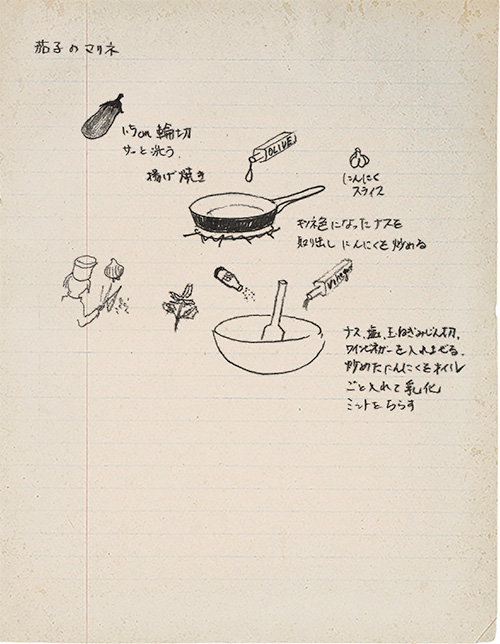 茄子のマリネ
1.5cm 輪切
サーと洗う
揚げ焼き
OLIVE
にんにく
スライス
キツネ色になったナスを
取り出し にんにくを炒める
Vinegar
ナス、塩、玉ねぎみじん切、
ワインビネガーを入れまぜる、
炒めたにんにくをオイル
ごと入れて乳化
ミントをちらす